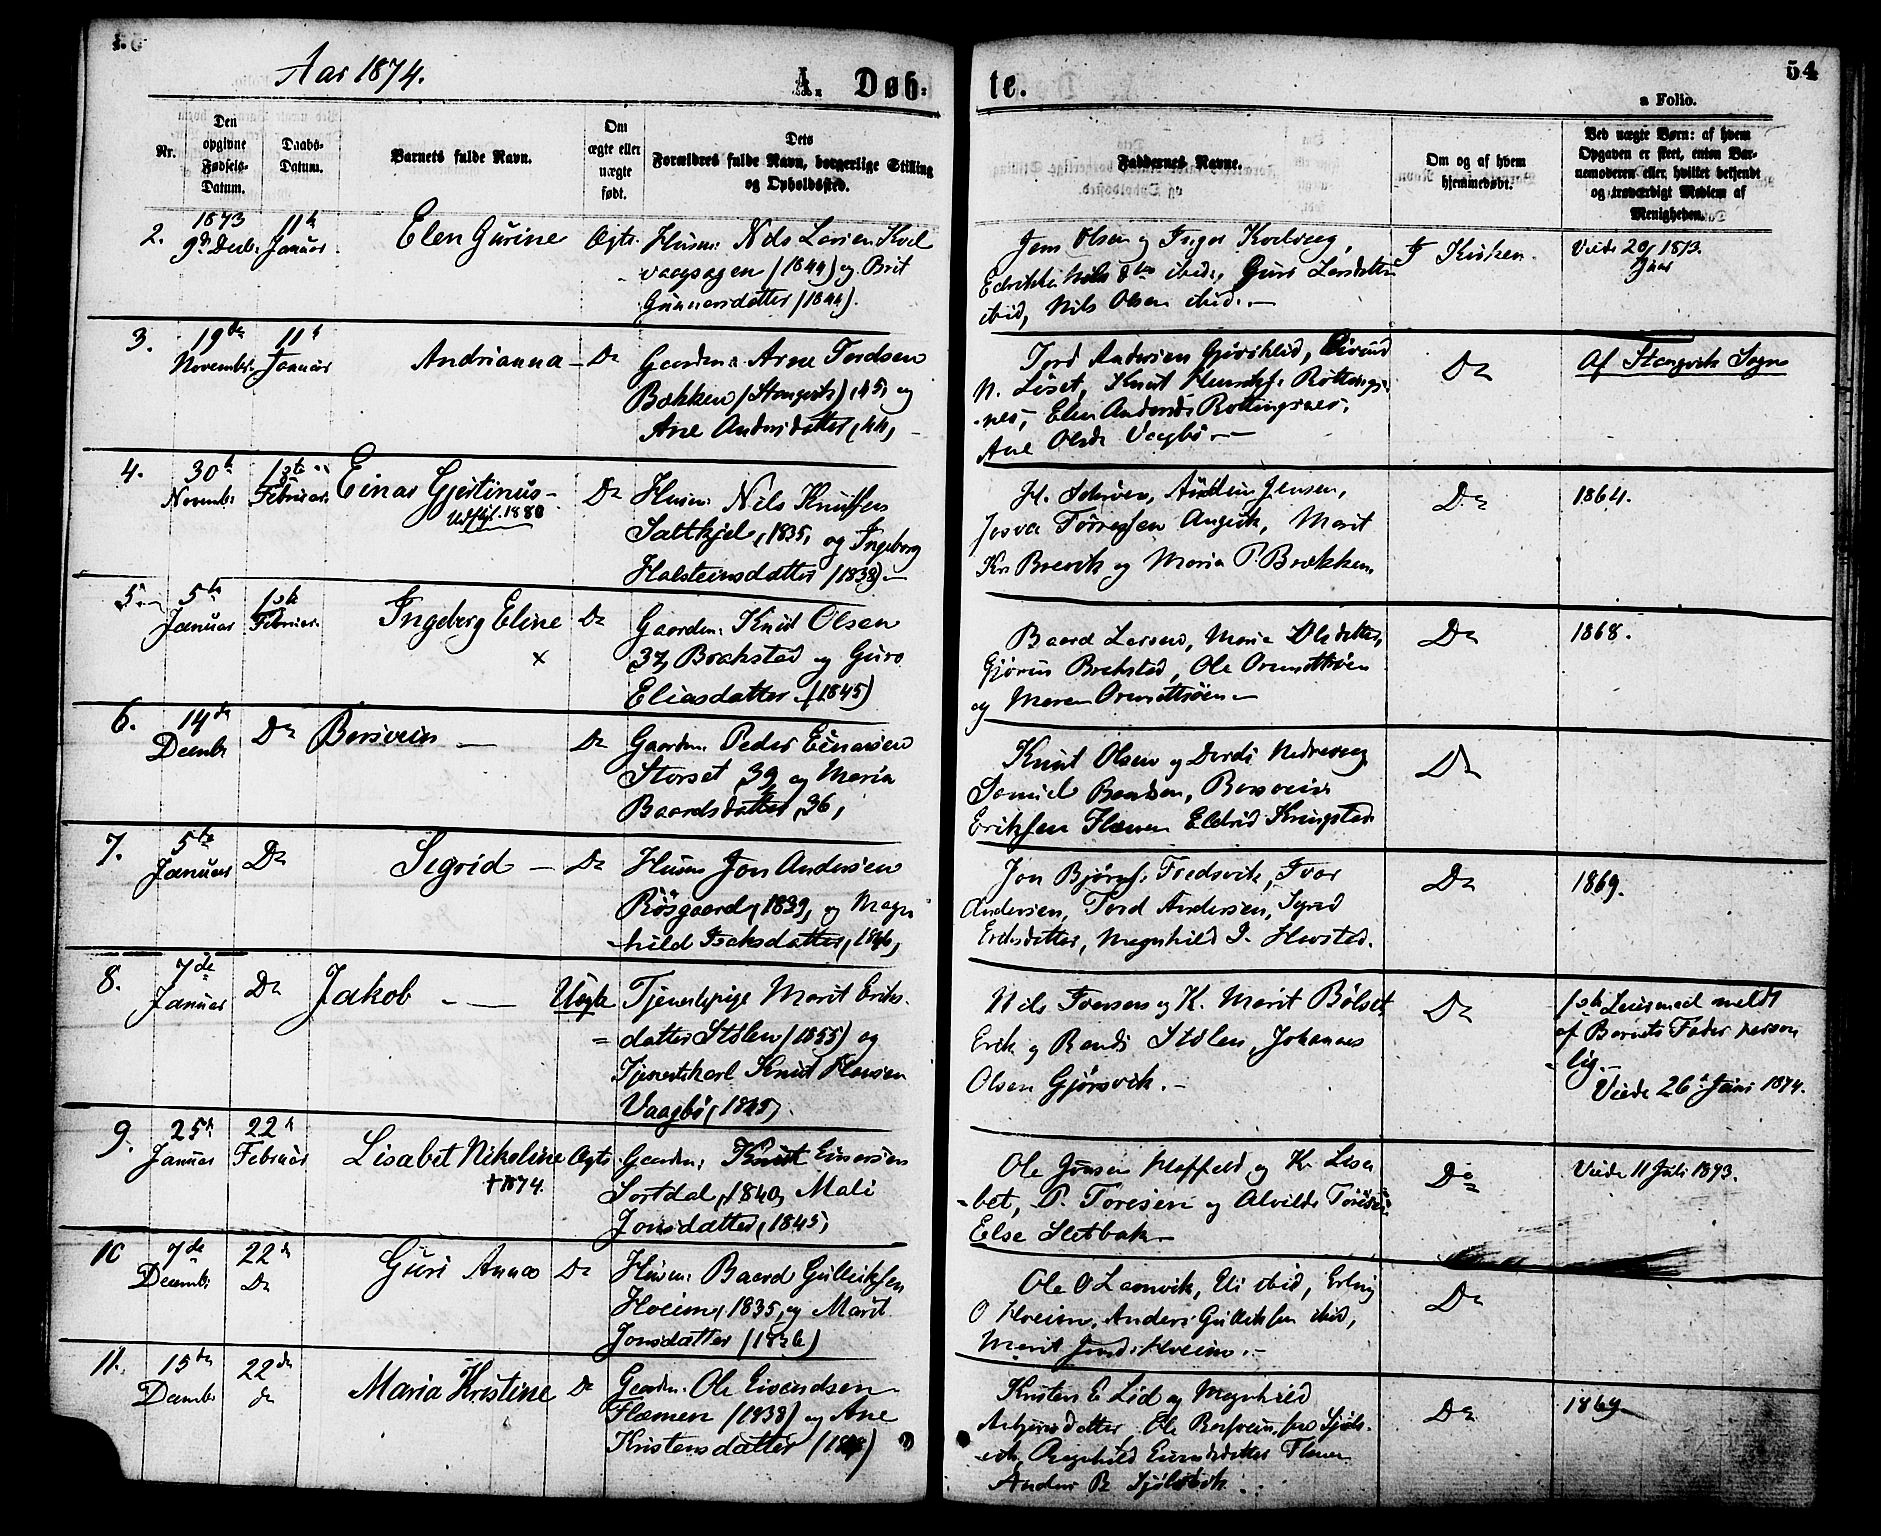 Aar 1874.
A. Døb-
te.
54
a Folio.
Nr.
Den opgivne Fødsels-Datum.
Daabs-Datum.
Barnets fulde Navn.
Om ægte eller uægte født.
Dets Forældres fulde Navn, borgerlige Stilling og Opholdssted.
Faddernes Navne.
Om og af hvem hjemmedøbt.
Ved uægte Børn: af hvem Opgaven er skeet, enten Barnemoderen eller, hvilket bekjendt og troværdigt Medlem af Menigheden.
2.
1873
9de Decb.
11te
Januar
Elen Gurine
Ægte
Husm: Nils Larsen Kvel
vaagsagen (1844) og Brit
Gunnarsdatter (1844).
Jens Olsen og Inger Kvelvaag,
ibid: Guro Larsdatter
ibid, Nils Olsen ibid.
I Kirken.
Viede 20 1873.
Juni
3.
19de
Novembr.
11te
Januar
Andrianna
Do
Gaardm: Arne Tordsen
Bækken (Stangvik), 45, og
Ane Andersdatter, 44,
Tord Andersen
N. Liset, Knut
nes, Elen Rottingsnes,
Ane Olsd. Vaagbø.
Do
Af Stangvik Sogn
4.
30te
Novembr
1ste
Februar
Einar Gjertinus
Udflyt. 1880
Do
Husm: Nils Knutsen
Saltkjel, 1835, og Ingeborg
Halsteinsdatter (1838)
Jensen,
Josva Angvik, Marit
Kr. Brevik og Maria P. Brækken.
Do
1864.
5.
5te
Januar
1ste
Februar
Ingeborg Eline
x
Do
Gaardm: Knut Olsen
37, Brakstad og Guro
Eliasdatter (1845)
Baard Larsen, Maria Olsdatter,
Gjøren Brakstad, Ole
og Maren
Do
1868.
6.
14de
Decembr
Do
Bersvein
Do
Gaardm: Peder Einarsen
Storset, 39, og Maria
Baardsdatter, 36,
Knut Olsen og Dordi Nedrevaag
Samuel Bersvein
Eriksen Flemen Eldrid Kringstad
Do
7.
5te
Januar
Do
Sigrid
Do
Husm Jon Andersen
Røsgaard, 1839, og Magn
hild Isaksdatter, 1846,
Jon Bjørns. Fredsvik, Ivar
Andersen, Tord Andersen, Sigrid
Eriksdatter, Magnhild I. Havstad.
Do
1869.
8.
7de
Januar
Do
Jakob
Uægte
Tjenestepige Marit Eriks-
datter Stølen (1855) og
Tjenestekarl Knut Hansen
Vaagbø, 1845,
Nils Iversen og K. Marit Bølset
Erik og Randi Stølen, Johannes
Olsen Gjørsvik.
Do
1ste Leiermaal meldt
af Barnets Fader person
lig.
Viede 26de Juni 1874.
9.
25de
Januar
22de
Februar
Lisabet Nikoline
†1874.
Ægte
Gaardm: Knut Einarsen
Sortdal, 1840, Mali
Jonsdatter, 1845,
Ole Jonsen og K. Lisa
bet, P. Toresen og Alvilde
Else Sletbak
Do
Viede 11 Juli 1873.
10
7de
Decembr
22de
Do
Guri Anna
Do
Husm: Baard Gulleiksen
Hoeim, 1835, og Marit
Jonsdatter (1836)
Ole O Lamvik, Eli ibid, Erling
O Hoeim, Anders Gulleiksen ibid,
Marit Jonsd: Hoeim.
Do
11.
15de
Decembr
22de
do
Maria Kristine
Do
Gaardm: Ole Eivindsen
Flemen (1838) og Ane
Kristensdatter
Kristen E. Lid og Magnhild
Ole
Ragnhild Flemen
Anders B. Sjølsvik.
Do
1869